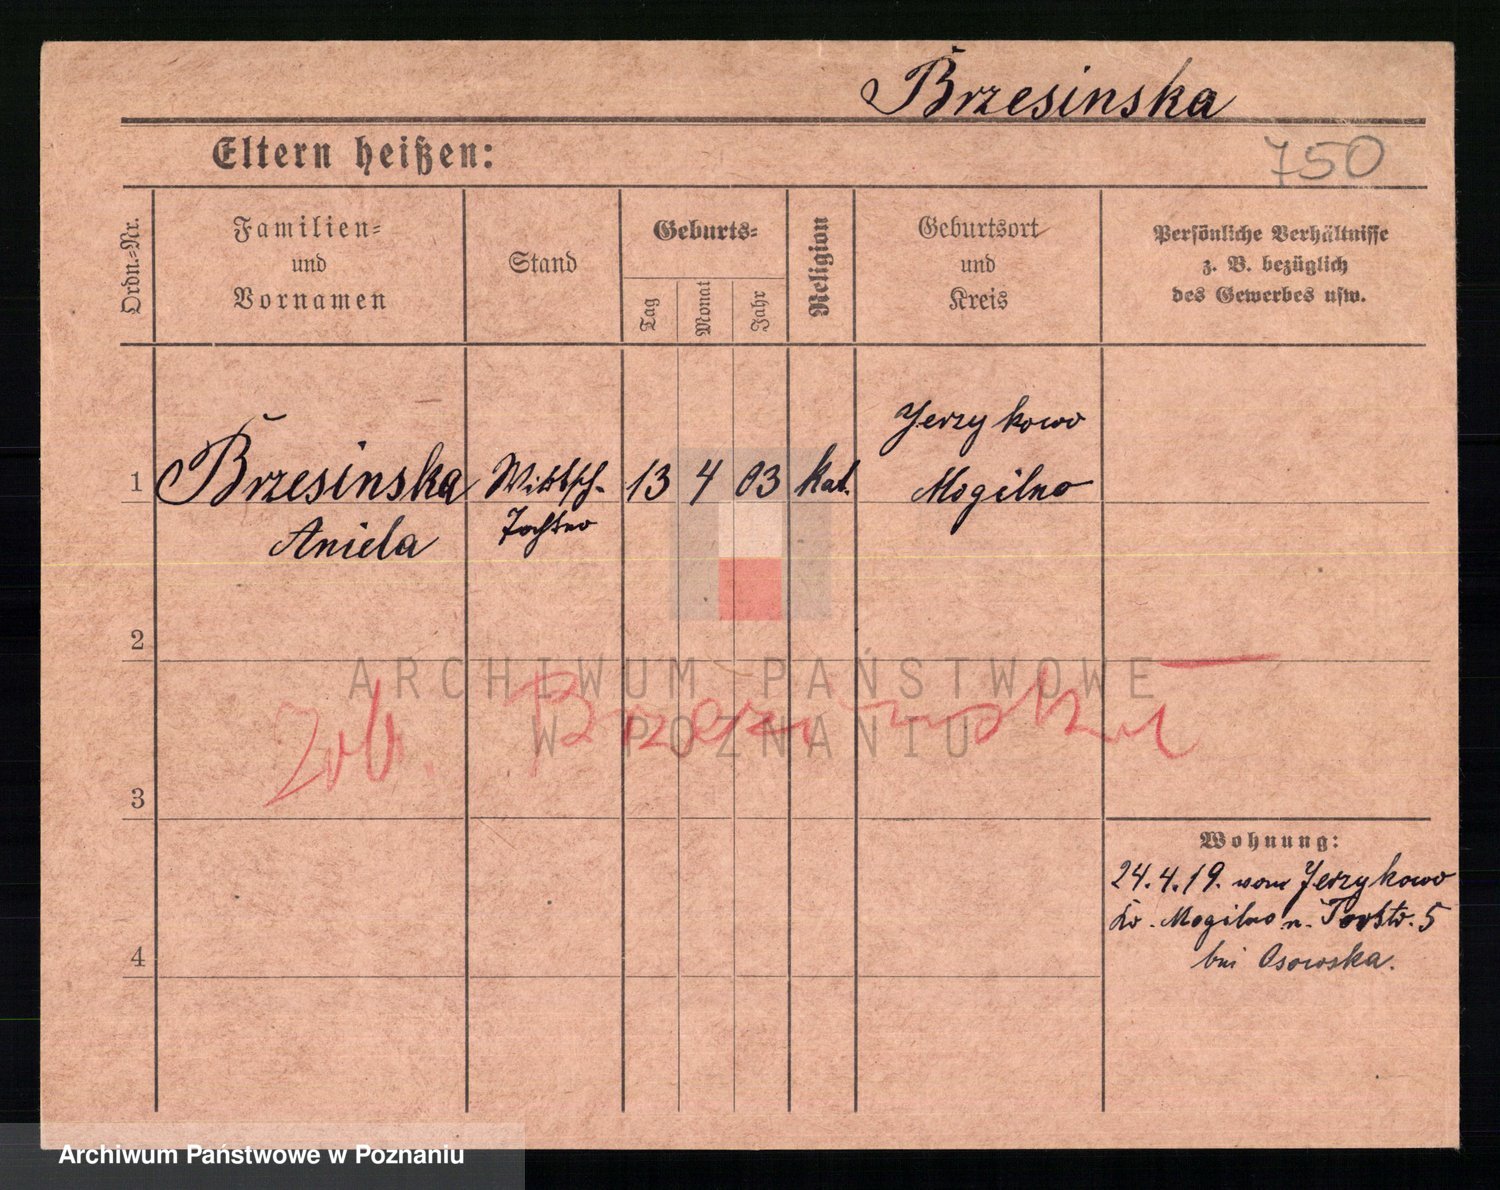 Brzesinska
Eltern heißen:
750
Ordn.=Nr.
Familien=
und
Vornamen
Stand
Geburts=
Tag
Monat
Jahr
Religion
Geburtsort
und
Kreis
Persönliche Verhältnisse
z. B. bezüglich
des Gewerbes usw.
1
Brzesinska
Aniela
Wirtsch-
Tochter
13
4
03
kat.
Jerzykowo
Mogilno
2
ARCHIWUM PAŃSTWOWE
W POZNANIU
Zob. Brzezińska
3
Wohnung:
24.4.19. vom Jerzykowo
Kr. Mogilno n. Torstr. 5
bei Osowska.
4
Archiwum Państwowe w Poznaniu